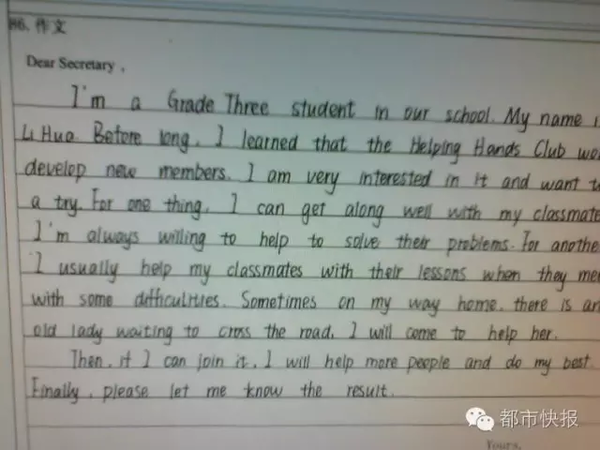 86. 作文
Dear Secretary,
I'm a Grade Three student in our school. My name i
Li Hua. Before long, I learned that the Helping Hands Club wo
develop new members. I am very interested in it and want t
a try. For one thing, I can get along well with my classmate
I'm always willing to help to solve their problems. For another
I usually help my classmates with their lessons when they me
with some difficulities. Sometimes on my way home, there is an
old lady waiting to cross the road, I will come to help her.
Then, if I can join it, I will help more people and do my best.
Finally, please let me know the result.
都市快报
Yours,